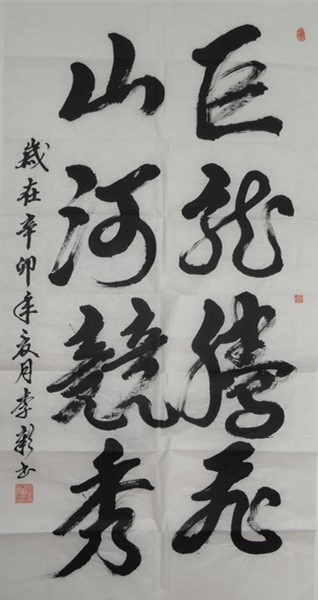 巨龍騰飛
山河競秀
歲在辛卯年夏月李彩書